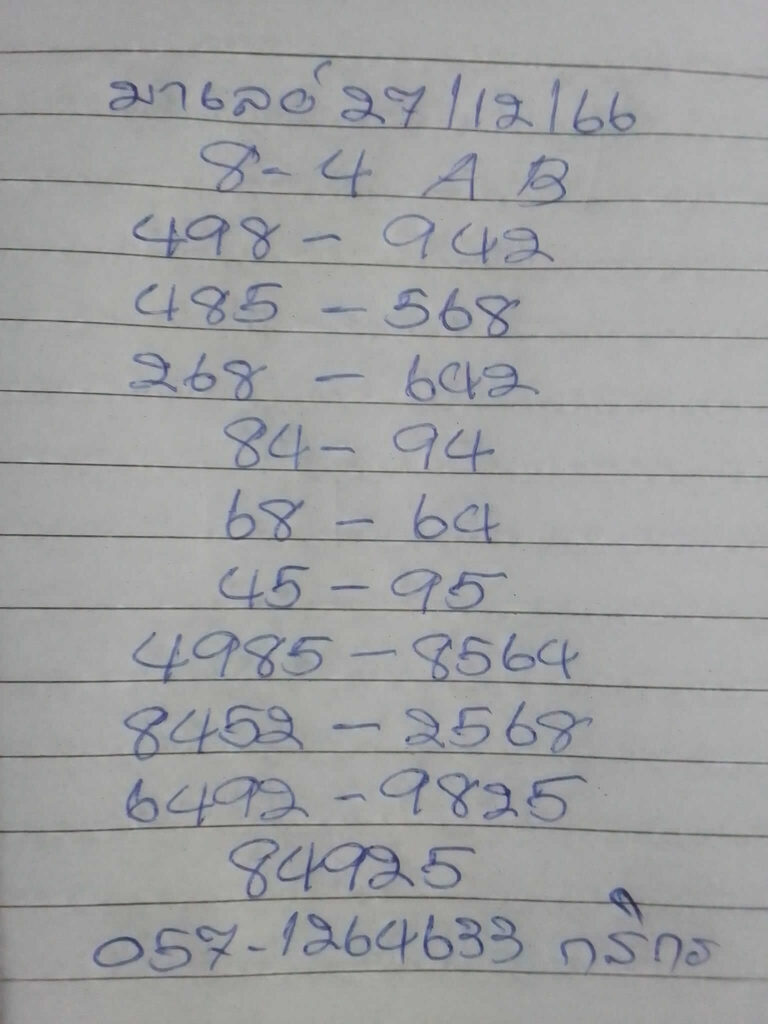 มาเลย์ 27/12/66
8-4 A B
498 - 942
485 - 568
268 - 642
84 - 94
68 - 64
45 - 95
4985 - 8564
8452 - 2568
6492 - 9825
84925
057-1264633